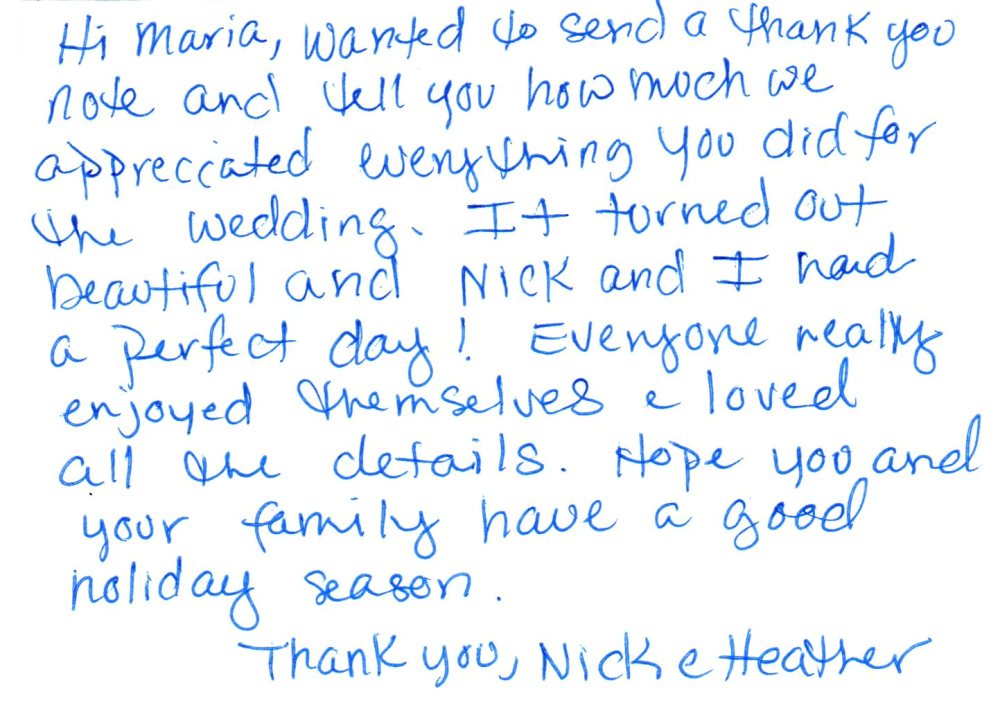 Hi Maria, wanted to send a thank you
note and tell you how much we
appreciated everything you did for
the wedding. It turned out
beautiful and Nick and I had
a perfect day! Everyone really
enjoyed themselves & loved
all the details. Hope you and
your family have a good
holiday season.
Thank you, Nick & Heather